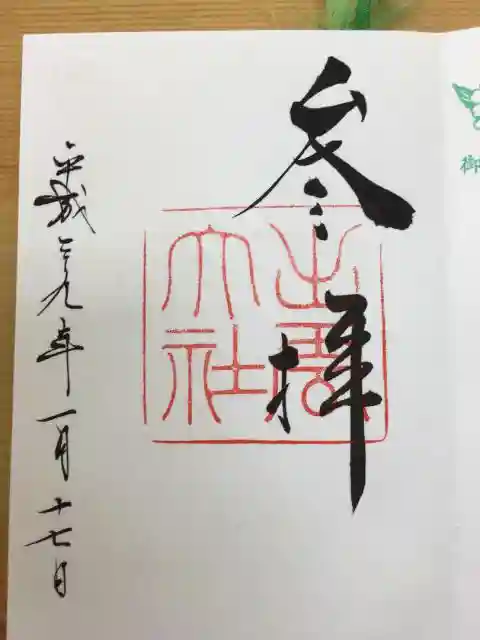 参拝
大社
平成二九年一月十七日
御